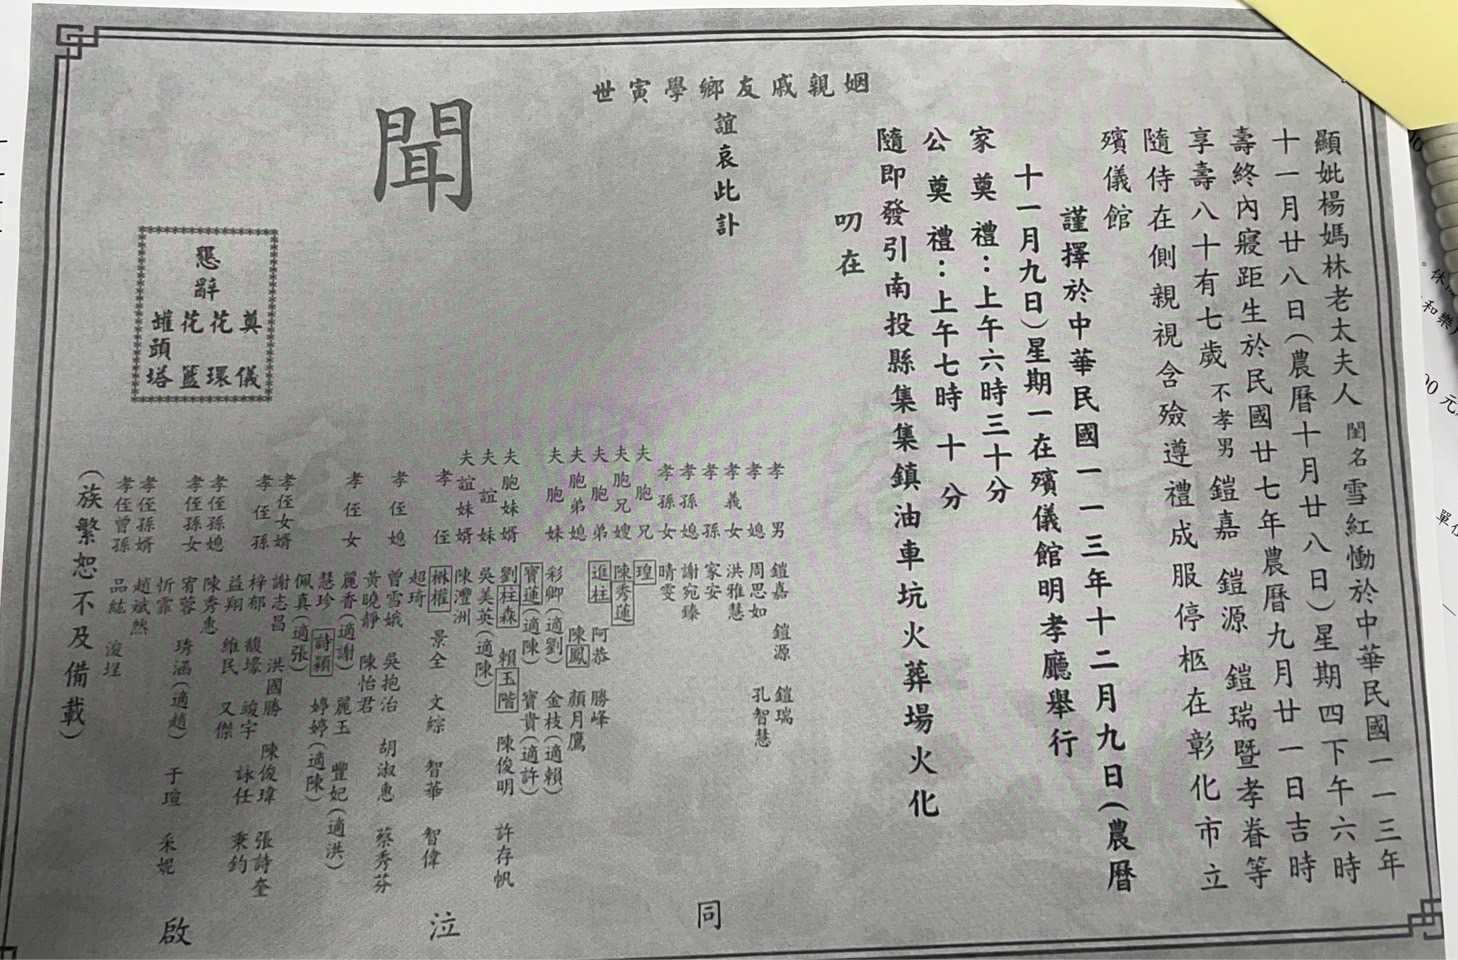 顯妣楊媽林老太夫人 閨名雪紅慟於中華民國一一三年
十一月廿八日(農曆十月廿八日)星期四下午六時
壽終內寢距生於民國廿七年農曆九月廿一日吉時
享壽八十有七歲 不孝男 鎧嘉 鎧源 鎧瑞暨孝眷等
隨侍在側親視含殮遵禮成服停柩在彰化市立
殯儀館
謹擇於中華民國一一三年十二月九日(農曆
十一月九日)星期一在殯儀館明孝廳舉行
家奠禮：上午六時三十分
公奠禮：上午七時十分
隨即發引南投縣集集鎮油車坑火葬場火化
叨在
姻親戚友鄉學寅世
誼哀此訃
聞
懇辭
奠儀
花環
花籃
罐頭塔
孝男 鎧嘉 鎧源 鎧瑞
孝媳 周思如 孔智慧
孝義女 洪雅慧
孝孫 家安
孝孫媳 謝宛臻
孝孫女 晴雯
夫胞兄 瑝
夫胞兄嫂 陳秀蓮
夫胞弟 進柱 阿恭 勝峰
夫胞弟媳 陳鳳 顏月鷹
夫胞妹 彩卿(適劉) 金枝(適賴)
寶蓮(適陳) 寶貴(適許)
夫胞妹婿 劉柱森 賴玉階 陳俊明 許存帆
夫誼妹 吳美英(適陳)
夫誼妹婿 陳灃洲
孝侄 琳權 景全 文綜 智華 智偉
超琦
孝侄媳 曾雪娥 吳抱治 胡淑惠 蔡秀芬
黃曉靜 陳怡君
孝侄女 麗香(適謝) 麗玉 豐妃(適洪)
慧珍 詩穎 婷婷(適陳)
佩真(適張)
孝侄女婿 謝志昌 洪國勝 陳俊瑋 張詩奎
孝侄孫 梓郁 馥壕 竣宇 詠任 秉鈞
益翔 維民 又傑
孝侄孫媳 陳秀惠
孝侄孫女 宥蓉 琇涵(適趙) 于瑄 采妮
忻霏
孝侄孫婿 趙斌然
孝侄曾孫 品紘 浚埕
(族繁恕不及備載)
同
泣
啟